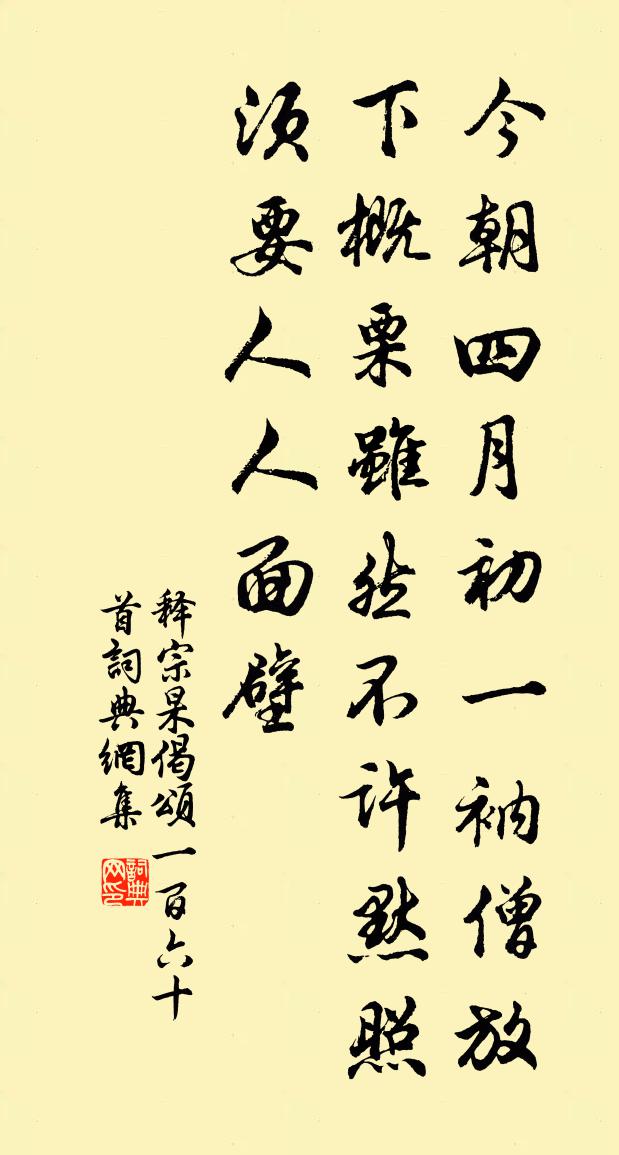 今朝四月初一衲僧放
下概栗雖然不许默照
须要人人面壁
释宗杲偈頌一百六十
首詞典網集
詞典網印